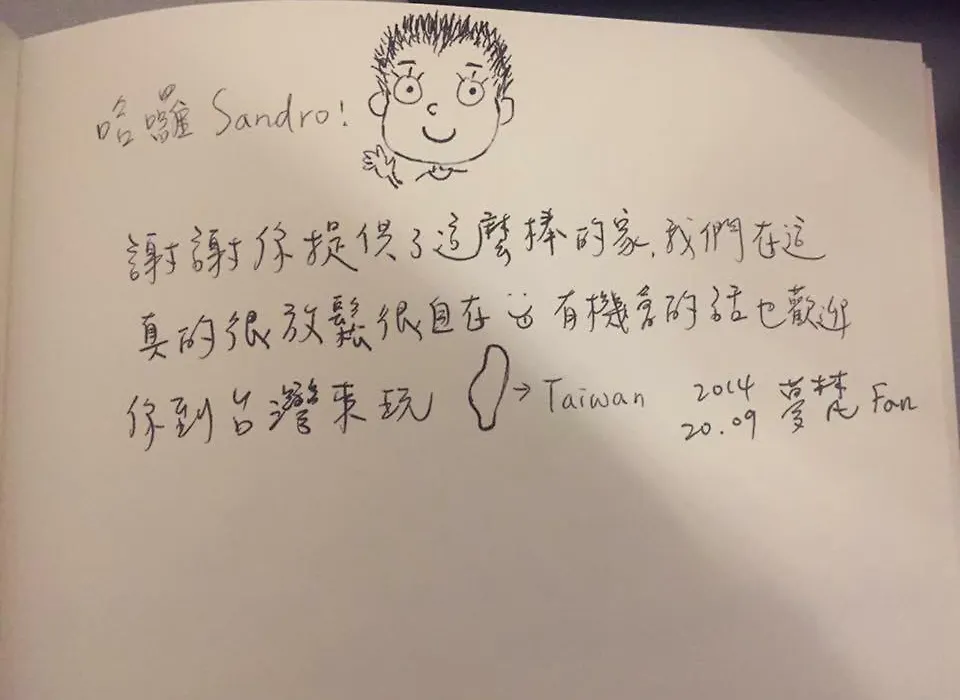 哈囉 Sandro!
謝謝你提供了這麼棒的家,我們在這
真的很放鬆很自在 有機會的話也歡迎
你到台灣來玩 → Taiwan 2014
20.09 夢梵 Fan